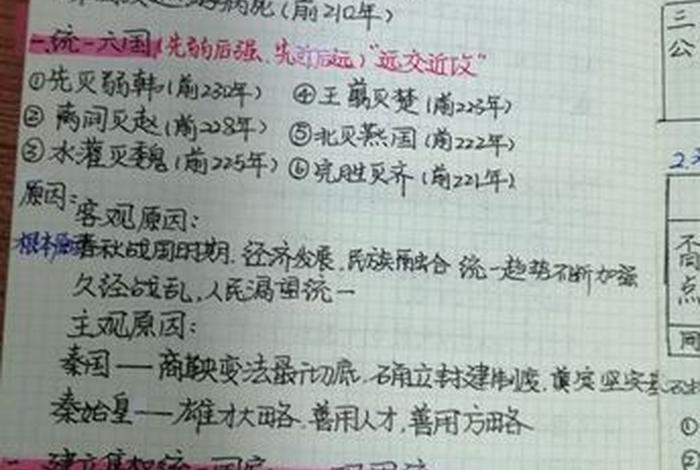 病死(前210年)
一、统一六国(先弱后强、先近后远)"远交近攻"
①先灭弱韩(前230年) ④王翦灭楚(前223年)
② 离间灭赵(前228年) ⑤北灭燕国(前222年)
③ 水灌灭魏(前225年) ⑥完胜灭齐(前221年)
原因:
客观原因:
根本原因 春秋战国时期、经济发展、民族融合 统一趋势不断加强
久经战乱,人民渴望统一
主观原因:
秦国——商鞅变法最彻底、确立封建制度、奠定坚实基
秦始皇——雄才大略、善用人才,善用方略
建立集权统一国家
三公
2.
不同点
同
①
②